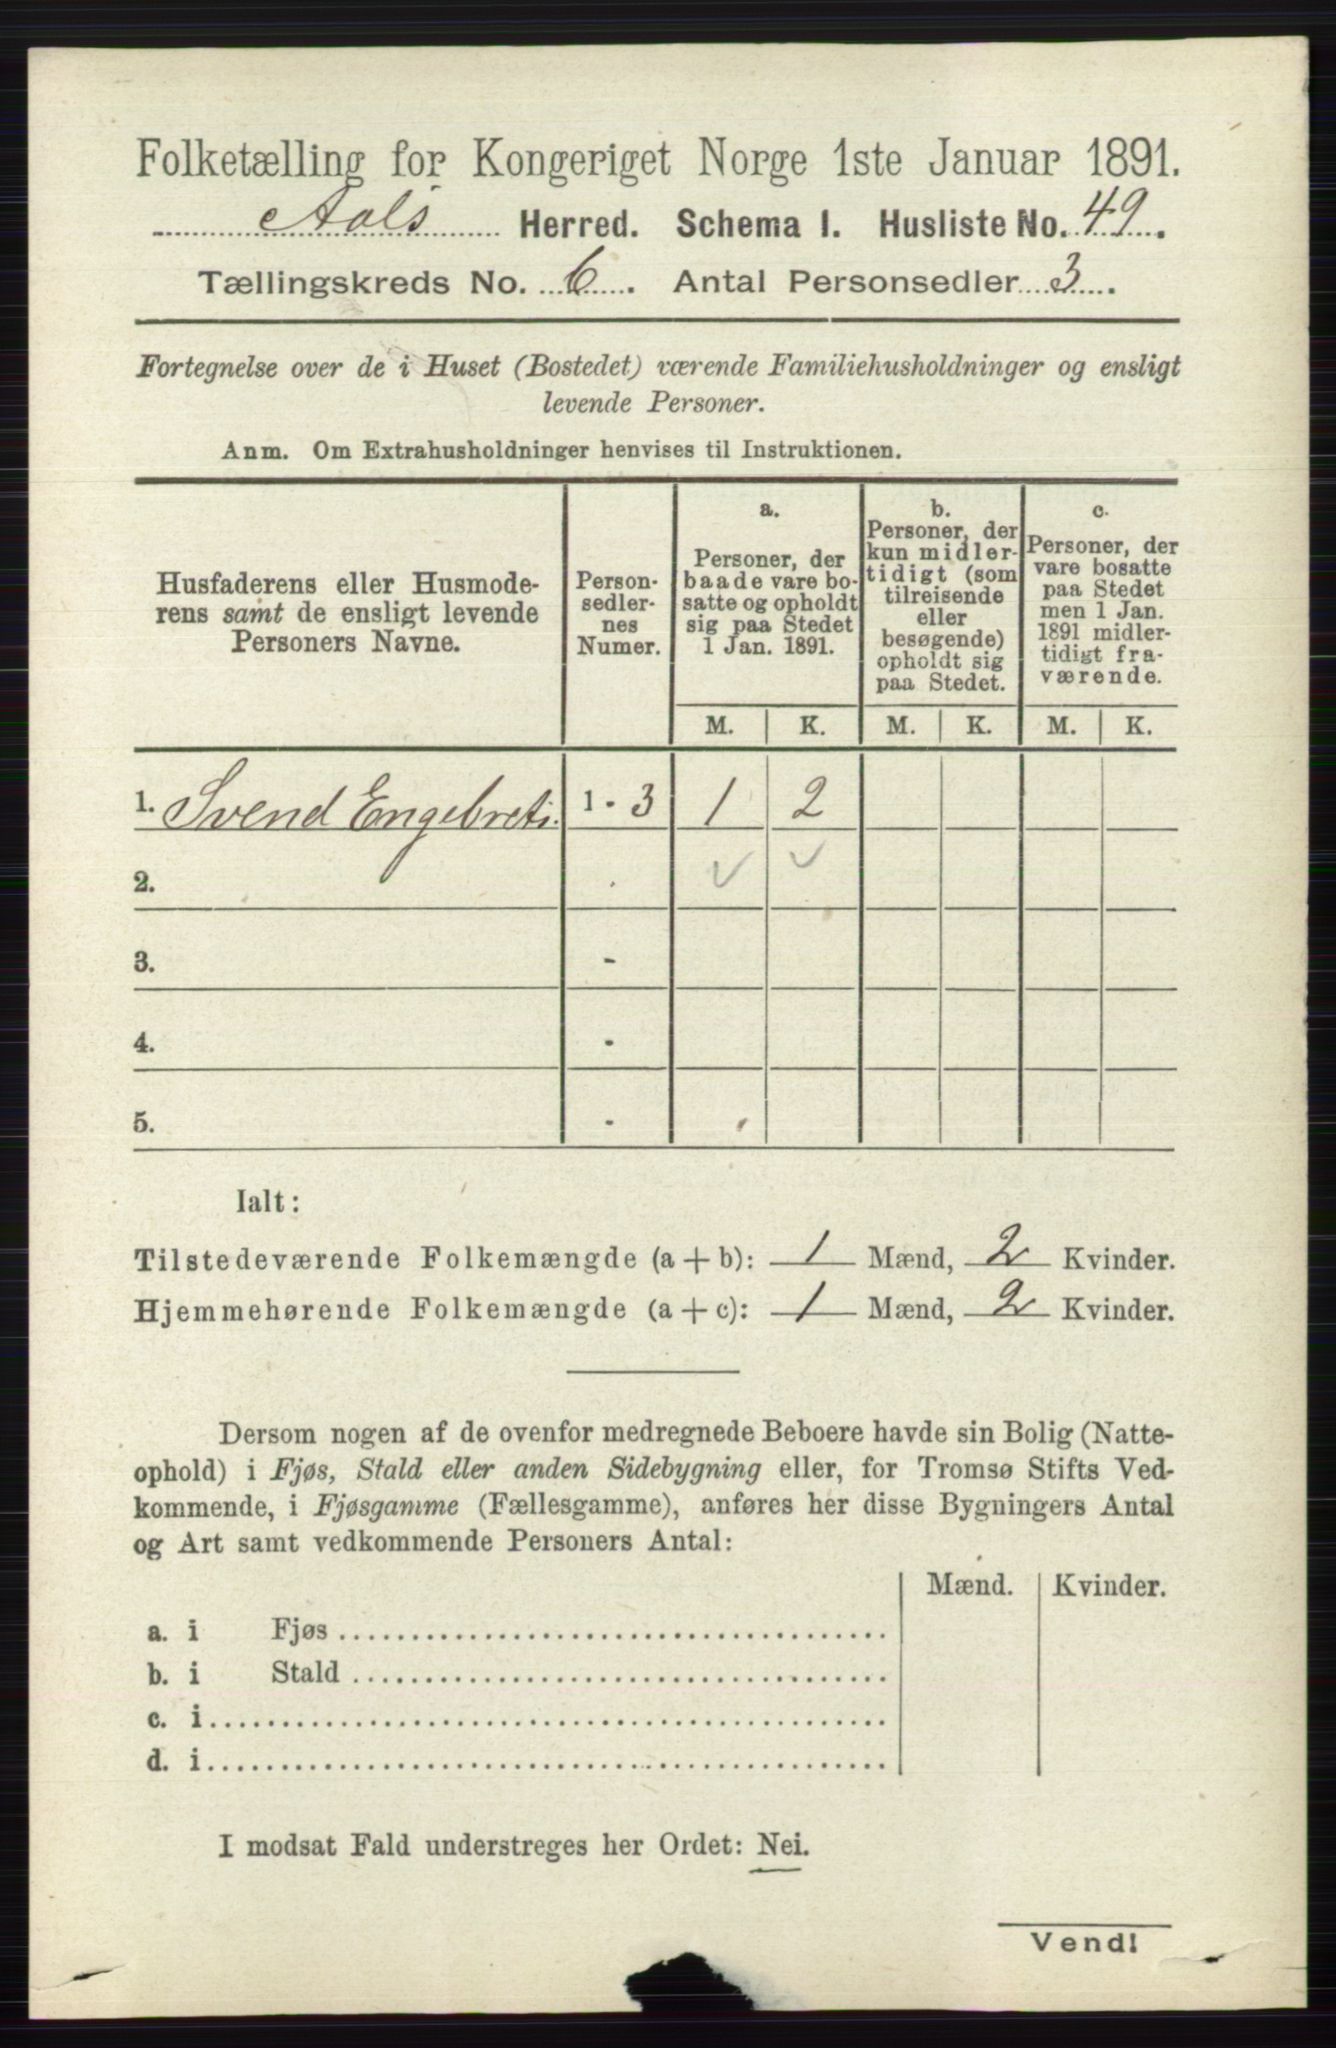 Folketælling for Kongeriget Norge 1ste Januar 1891.
Aals Herred. Schema I. Husliste No. 49.
Tællingskreds No. 6. Antal Personsedler 3.
Fortegnelse over de i Huset (Bostedet) værende Familiehusholdninger og ensligt
levende Personer.
Anm. Om Extrahusholdninger henvises til Instruktionen.
Husfaderens eller Husmode-
rens samt de ensligt levende
Personers Navne.
Person-
sedler-
nes
Numer.
a.
Personer, der
baade vare bo-
satte og opholdt
sig paa Stedet
1 Jan. 1891.
b.
Personer, der
kun midler-
tidigt (som
tilreisende
eller
besøgende)
opholdt sig
paa Stedet.
c.
Personer, der
vare bosatte
paa Stedet
men 1 Jan.
1891 midler-
tidigt fra-
værende.
M. K. M. K. M. K.
1. Svend Engebrets. 1 - 3 1 2
2.
3. -
4. -
5. -
Ialt:
Tilstedeværende Folkemængde (a + b): 1 Mænd, 2 Kvinder.
Hjemmehørende Folkemængde (a + c): 1 Mænd, 2 Kvinder.
Dersom nogen af de ovenfor medregnede Beboere havde sin Bolig (Natte-
ophold) i Fjøs, Stald eller anden Sidebygning eller, for Tromsø Stifts Ved-
kommende, i Fjøsgamme (Fællesgamme), anføres her disse Bygningers Antal
og Art samt vedkommende Personers Antal:
Mænd. Kvinder.
a. i Fjøs
b. i Stald
c. i
d. i
I modsat Fald understreges her Ordet: Nei.
Vend!